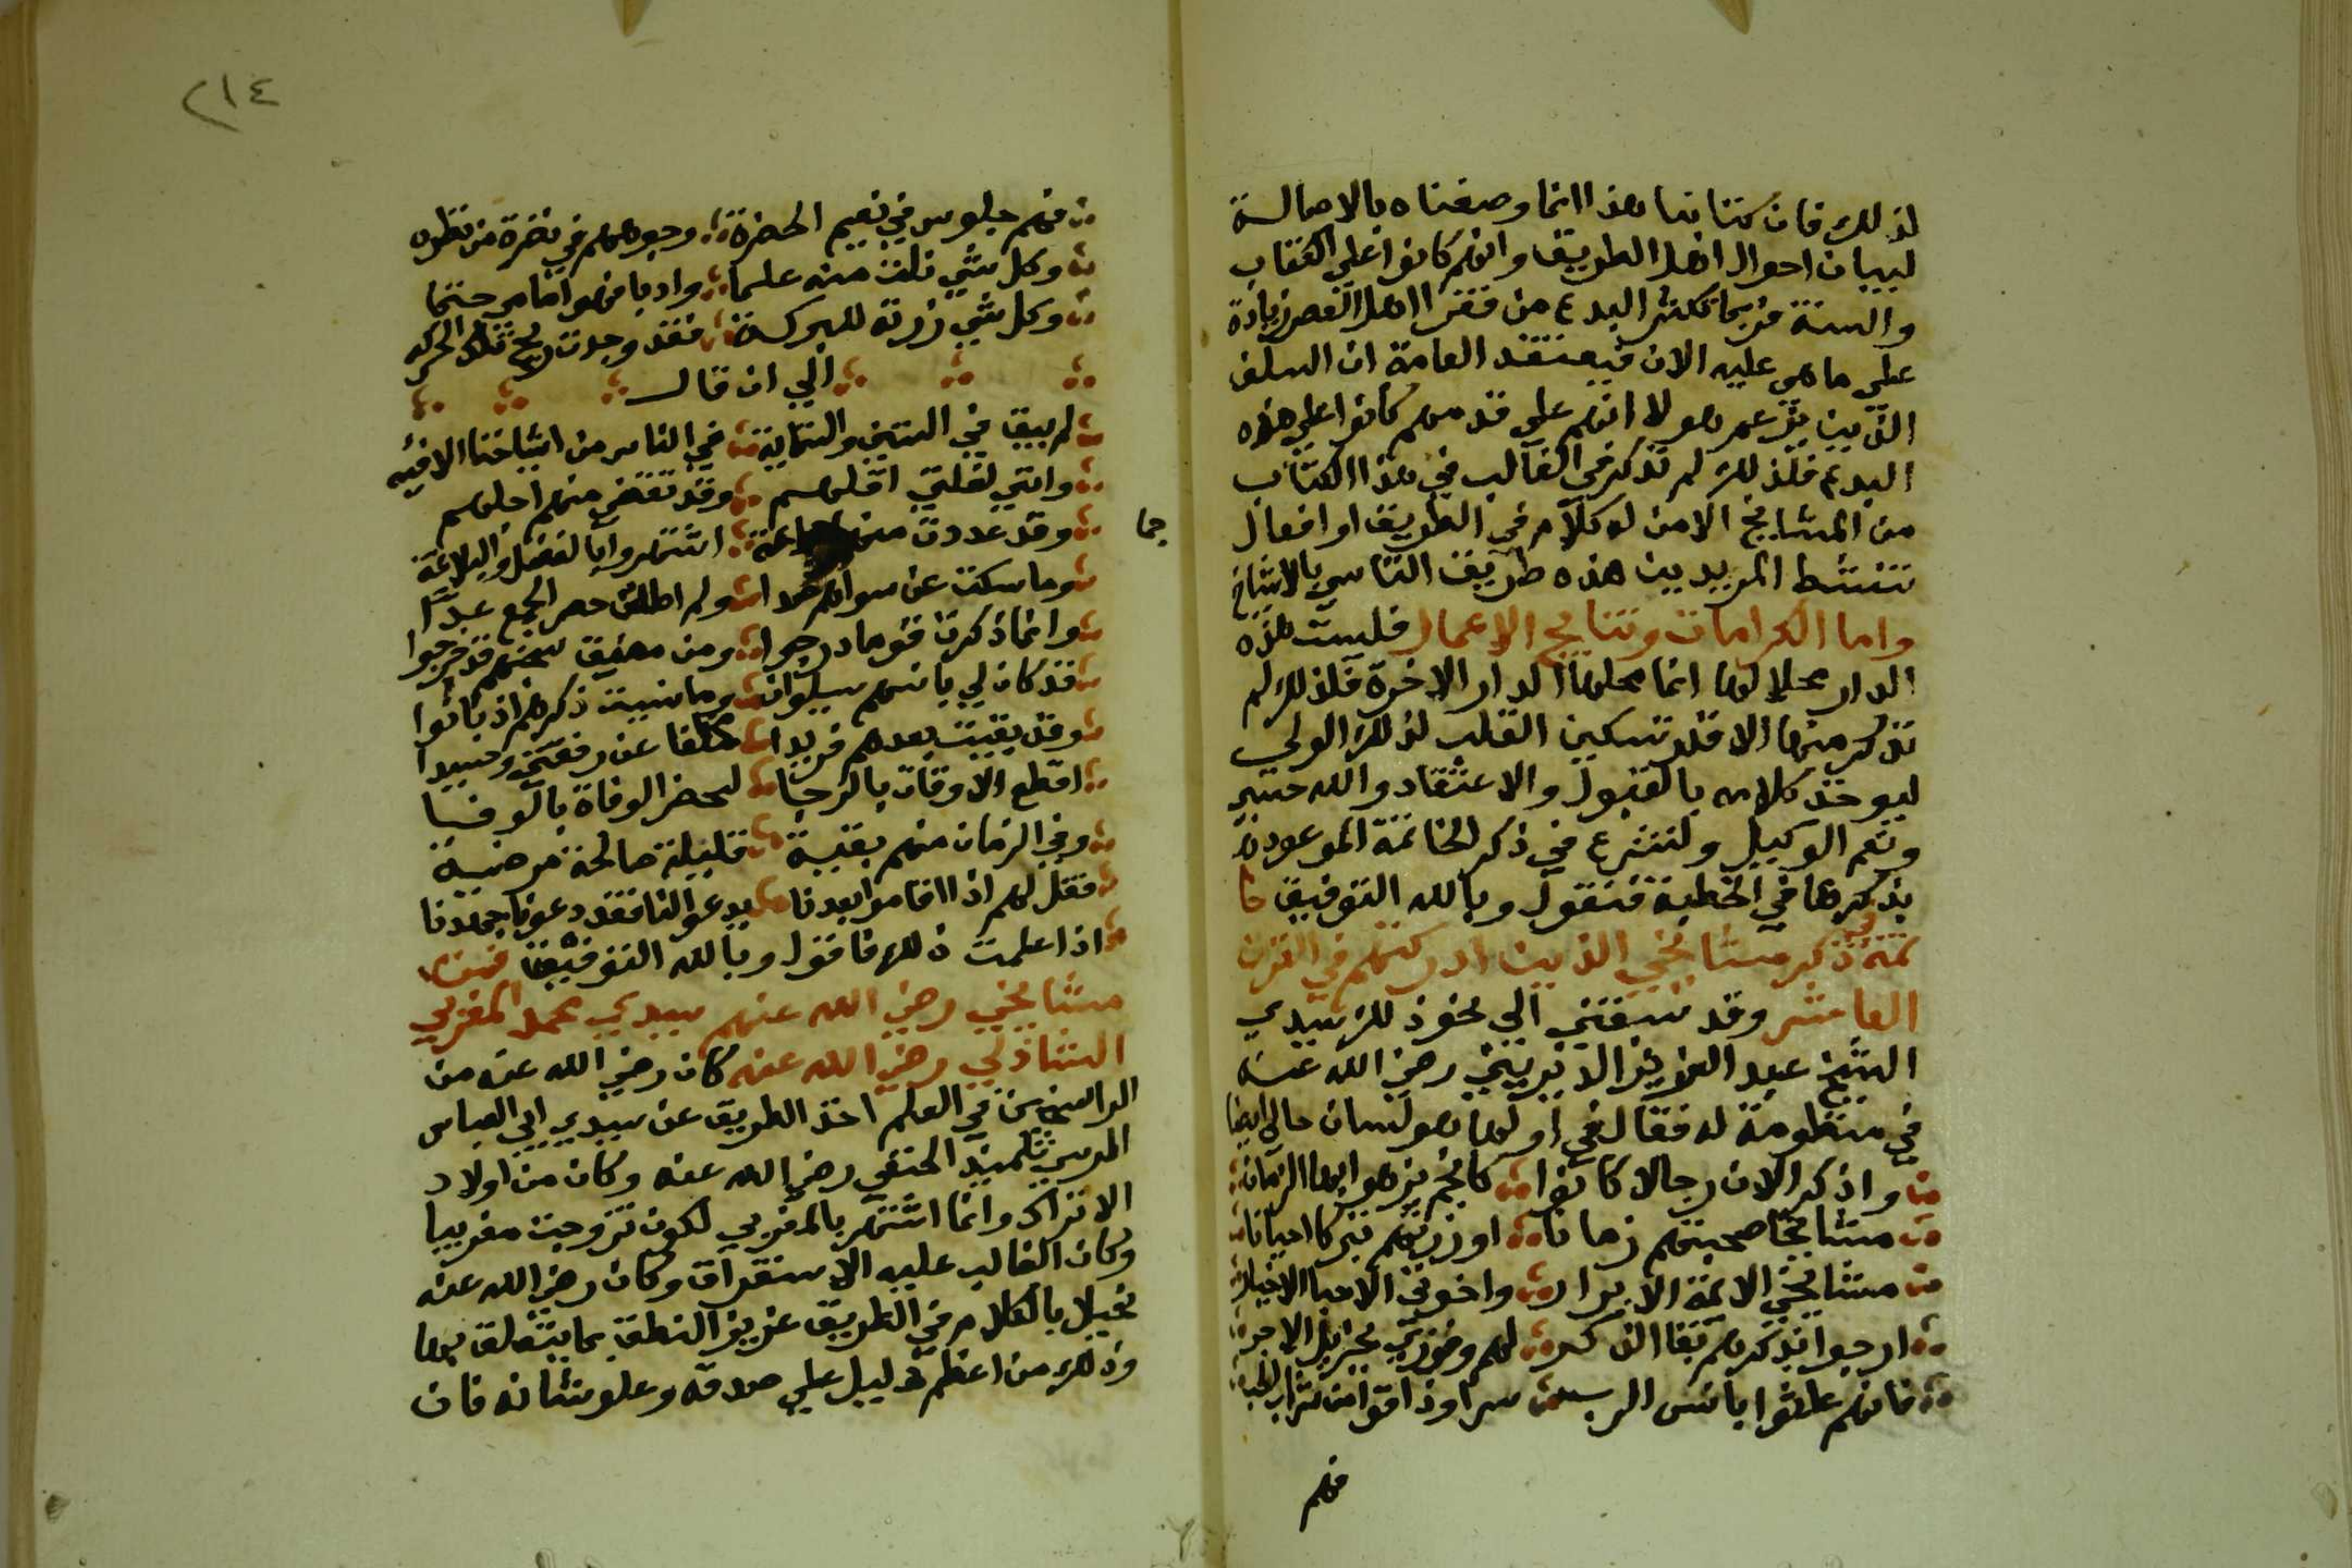 لذلك فان كتابنا هذا انما وضعناه بالاصالة
لبيان احوال اهل الطريق وانهم كانوا على الكتاب
والسنة فربما تكثر البدع من فقرا اهل العصر زيادة
على ما هي عليه الان فيعتقد العامة ان السلف
الذين يزعم هولا انهم على قدمهم كانوا على هذه
البدع فلذلك لم نذكر في الغالب في هذا الكتاب
من المشايخ الا من له كلام في الطريق او افعال
تنشط المريدين هذه طريق التاسي بالاشياخ
واما الكرامات ونتايج الاعمال فليست هذه
الدار محلا لها انما محلها الدار الاخرة فلذلك لم
نذكر منها الا قدر تسكين القلب لذلك الولي
ليوخذ كلامه بالقبول والاعتقاد والله حسبي
ونعم الوكيل ولنشرع في ذكر الخاتمة الموعود
بذكرها في الخطبة فنقول وبالله التوفيق
تمة ذكر مشايخي الذين ادركتهم في القرن
العاشر وقد سبقني الي نحو ذلك سيدي
الشيخ عبد العزيز الديريني رضي الله عنه
في منظومة له فقال في اولها هو لسان حالي ايضا
واذكر الان رجالا كانوا كانجم يزهو بها الزمان
مشايخا صحبتهم زمانا او زرتهم تبركا احيانا
مشايخي الائمة الابرار واخوتي الاحبا الاخيار
ارجوا بذكرهم بقا الذكر لهم وفوزي بجزيل الاجر
فانهم عاشوا بانس الرب سرا وذاقوا من شراب الحب
فهم
٢١٤
فهم جلوس في نعيم الحضرة وجوههم في نضرة من نظره
وكل شي نلت منه علما وادبا فهو امامي حتما
وكل شي زرته للبركة فقد وجدت ريح تلك الحركه
الي ان قال
لم يبق في الستين والثمانية في الناس من اشياخنا الا فيه
وانني لقلتي اقلهم وقد تقضي منهم اجلهم
وقد عددت منهم جماعة اشتهروا بالفضل والبلاغة
جما
وما سكت عن سواهم جحدا ولم اطلق حصر الجمع عدا
وانما ذكرت قوما درجوا ومن مضيق سجنهم قد خرجوا
قد كان لي بانسهم سلوان وما نسيت ذكرهم اذ بانوا
وقد بقيت بعدهم فريدا مخلفا عن رفقتي وحيدا
اقطع الاوقات بالرجا لمحضر الوفاة بالوفا
وفي الزمان منهم بقية قليلة صالحة مرضية
فقل لهم اذا اقاموا بعدنا يدعوا لنا فقد دعونا جهدنا
اذا علمت ذلك فاقول وبالله التوفيق فمن
مشايخي رضي الله عنهم سيدي محمد المغربي
الشاذلي رضي الله عنه كان رضي الله عنه من
الراسخين في العلم اخذ الطريق عن سيدي ابي العباس
المرسي تلميذ الحنفي رضي الله عنه وكان من اولاد
الاتراك وانما اشتهر بالمغربي لكون تزوجت مغربيا
وكان الغالب عليه الاستغراق وكان رضي الله عنه
بخيلا بالكلام في الطريق عزيز النطق بما يتعلق بها
وذلك من اعظم دليل علي صدقه وعلو شانه فان